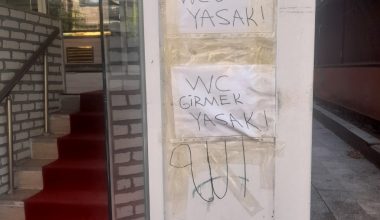 YASAK!
WC
GİRMEK
YASAK!